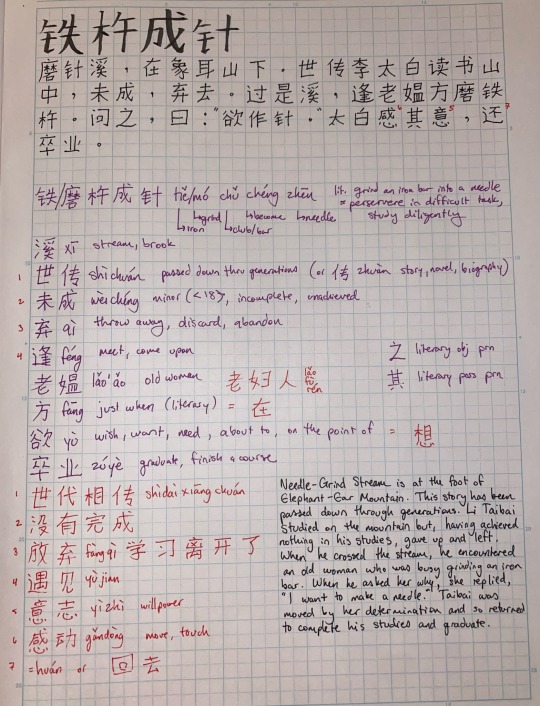 铁杵成针
磨针溪，在象耳山下。世传李太白读书山
中，未成，弃去。过是溪，逢老媪方磨铁
杵。问之，曰："欲作针。"太白感⁶其意⁵，还⁷
卒业。
铁/磨杵成针 tiě/mó chǔ chéng zhēn
iron grind club/bar become needle
lit. grind an iron bar into a needle
= perservere in difficult task,
study diligently
溪 xī stream, brook
1 世传 shìchuán passed down thru generations (or 传 zhuàn story, novel, biography)
2 未成 wèichéng minor (<18), incomplete, unachieved
3 弃 qì throw away, discard, abandon
4 逢 féng meet, come upon
之 literary obj prn
老媪 lǎo'ǎo old woman 老妇人 lǎo fù rén
其 literary poss prn
方 fāng just when (literary) = 在
欲 yù wish, want, need, about to, on the point of = 想
卒业 zúyè graduate, finish a course
1 世代相传 shìdài xiāng chuán
2 没有完成
3 放弃 fàngqì 学习离开了
4 遇见 yùjiàn
5 意志 yìzhì willpower
6 感动 gǎndòng move, touch
7 =huán or 回去
Needle-Grind Stream is at the foot of
Elephant-Ear Mountain. This story has been
passed down through generations. Li Taibai
studied on the mountain but, having achieved
nothing in his studies, gave up and left.
When he crossed the stream, he encountered
an old woman who was busy grinding an iron
bar. When he asked her why, she replied,
"I want to make a needle." Taibai was
moved by her determination and so returned
to complete his studies and graduate.